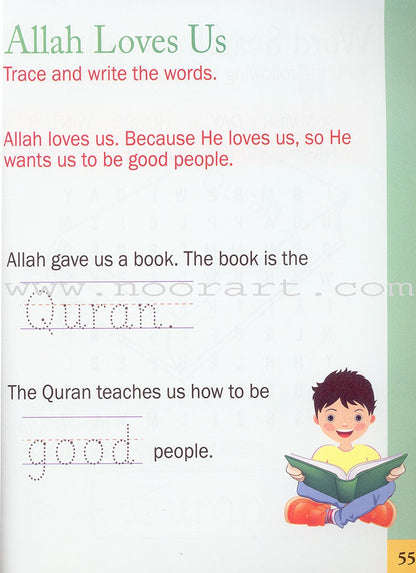 Allah Loves Us
Trace and write the words.
Allah loves us. Because He loves us, so He
wants us to be good people.
Allah gave us a book. The book is the
www.noorart.com
Quran.
The Quran teaches us how to be
good people.
55